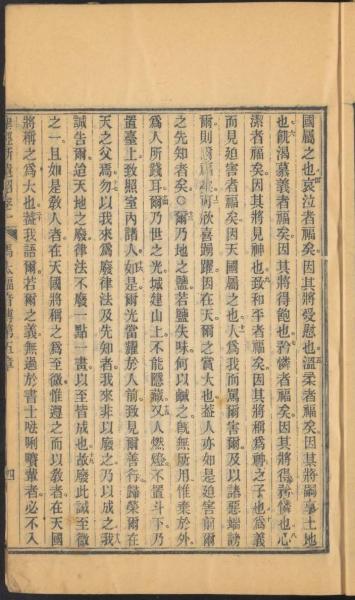 國屬之也哀泣者福矣因其將受慰也溫柔者福矣因其將嗣享土地
也飢渴慕義者福矣因其將得飽也矜憐者福矣因其將得矜憐也心
潔者福矣因其將見神也致和平者福矣因其將稱為神之子也為義
而見迫害者福矣因天國屬之也人為我而罵爾害爾及以諸惡端謗
爾則爾福矣欣喜踴躍因在天爾之賞大也蓋人亦如是迫害前爾
之先知者矣○爾乃地之鹽若鹽失味何以鹹之旣無所用惟棄於外
為人所踐耳爾乃世之光城建山上不能隱藏又人燃燈不置斗下乃
置臺上致照室內諸人如是爾光當耀於人前致見爾善行歸榮爾在
天之父焉勿以我來為廢律法及先知者我來非以廢之乃以成之我
誠告爾迨天地之廢律法不廢一點一畫以至皆成也故廢此誡至微
之一且如是敎人者在天國將稱之為至微惟遵之而以敎者在天國
將稱之為大也蓋我語爾若爾之義無過於書士𠵽唎㘔輩者必不入
馬太福音傳第五章
四